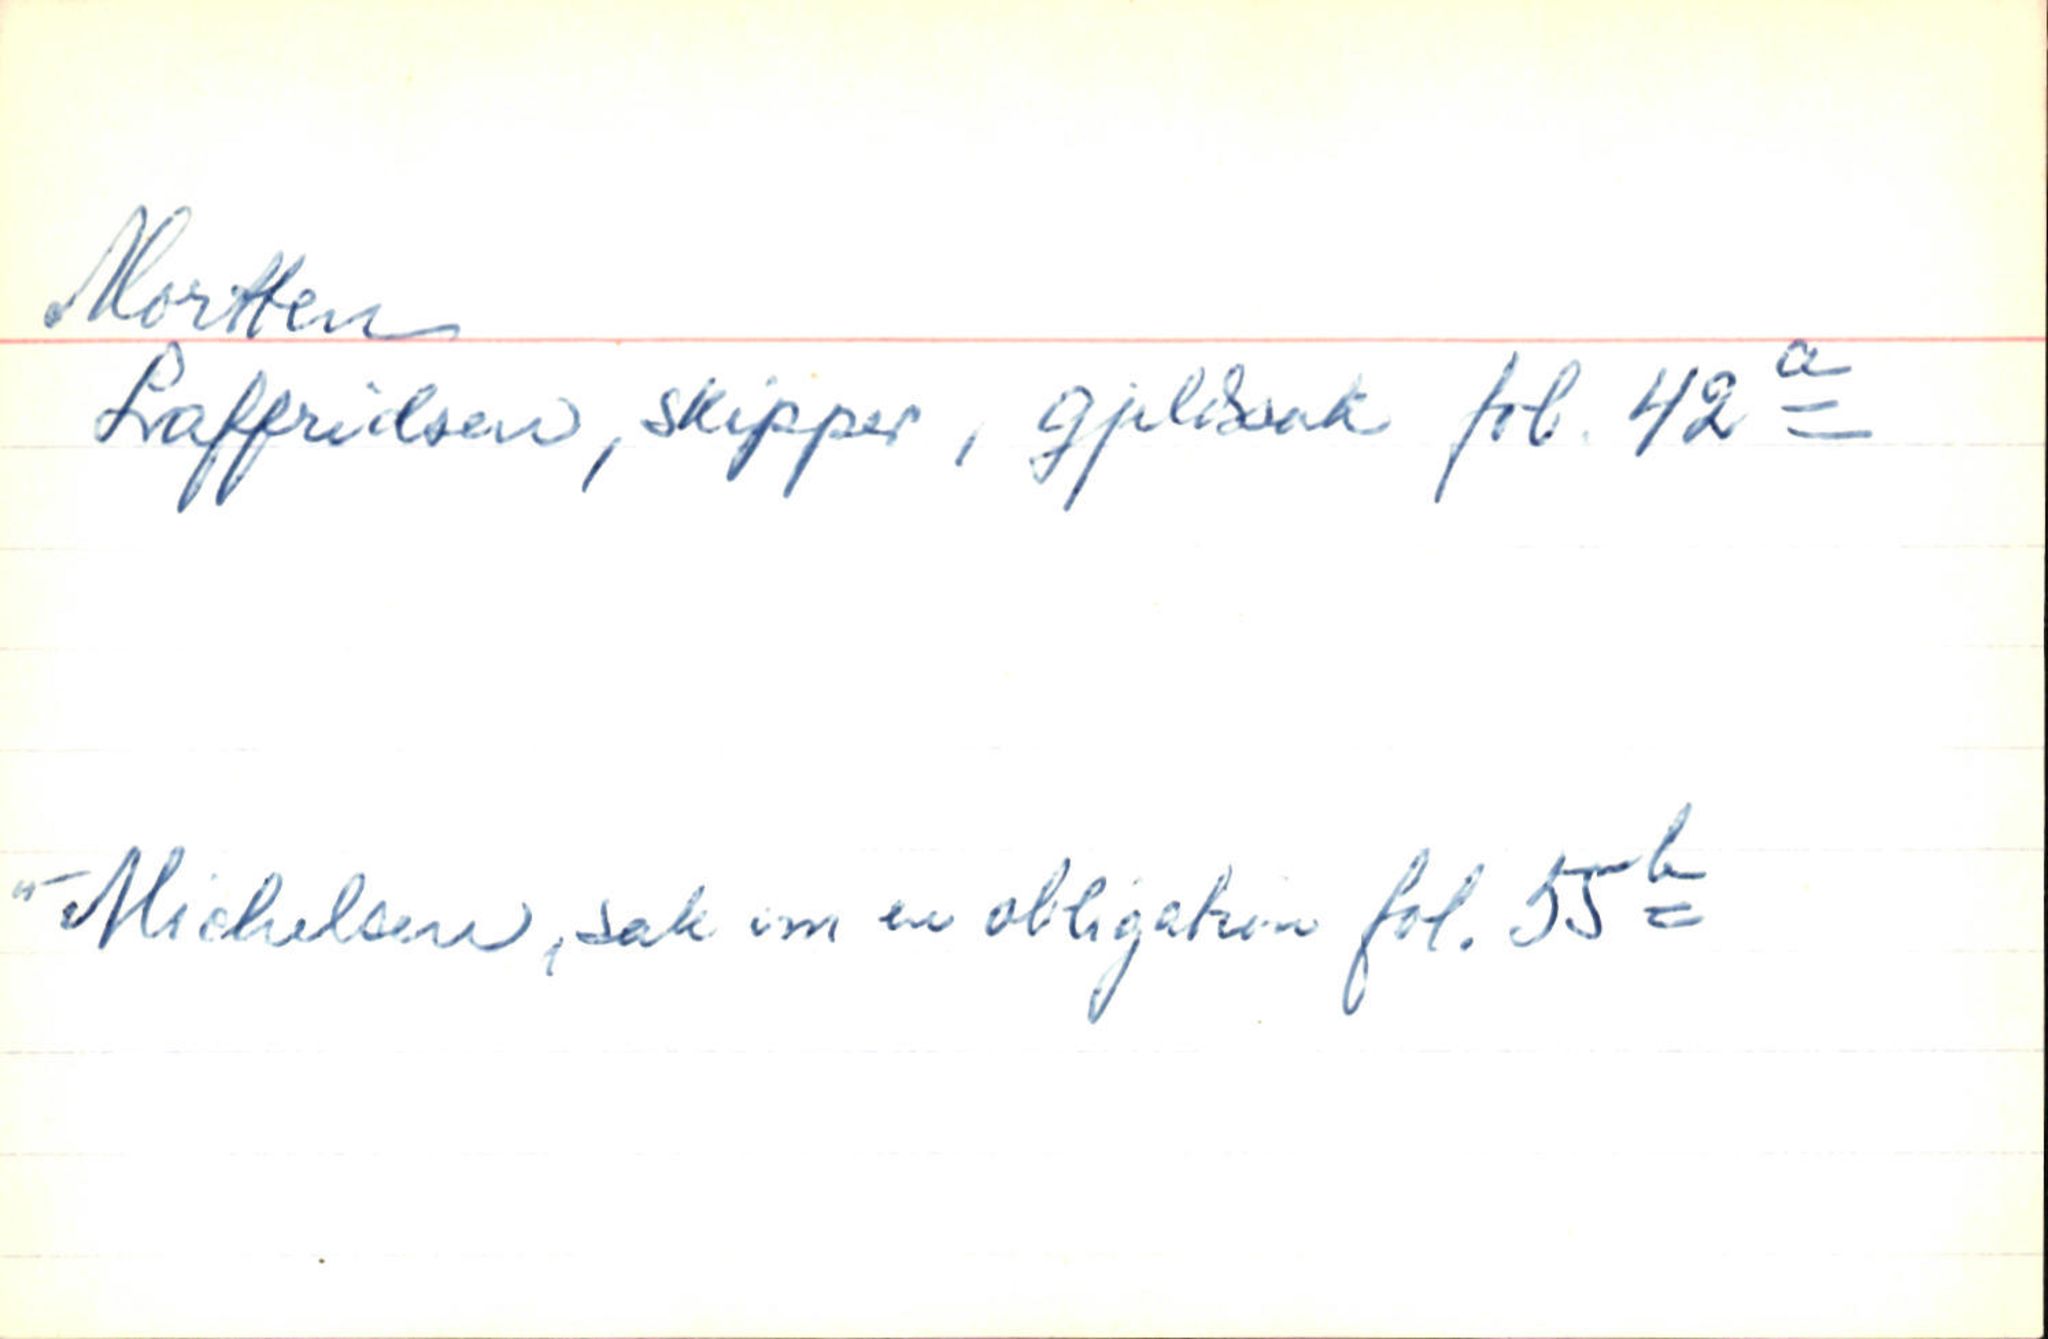 Mortten
Laffridsen, skipper, gjeldssak fol. 42 a
"- Michelsen, sak om en obligation fol. 55 b